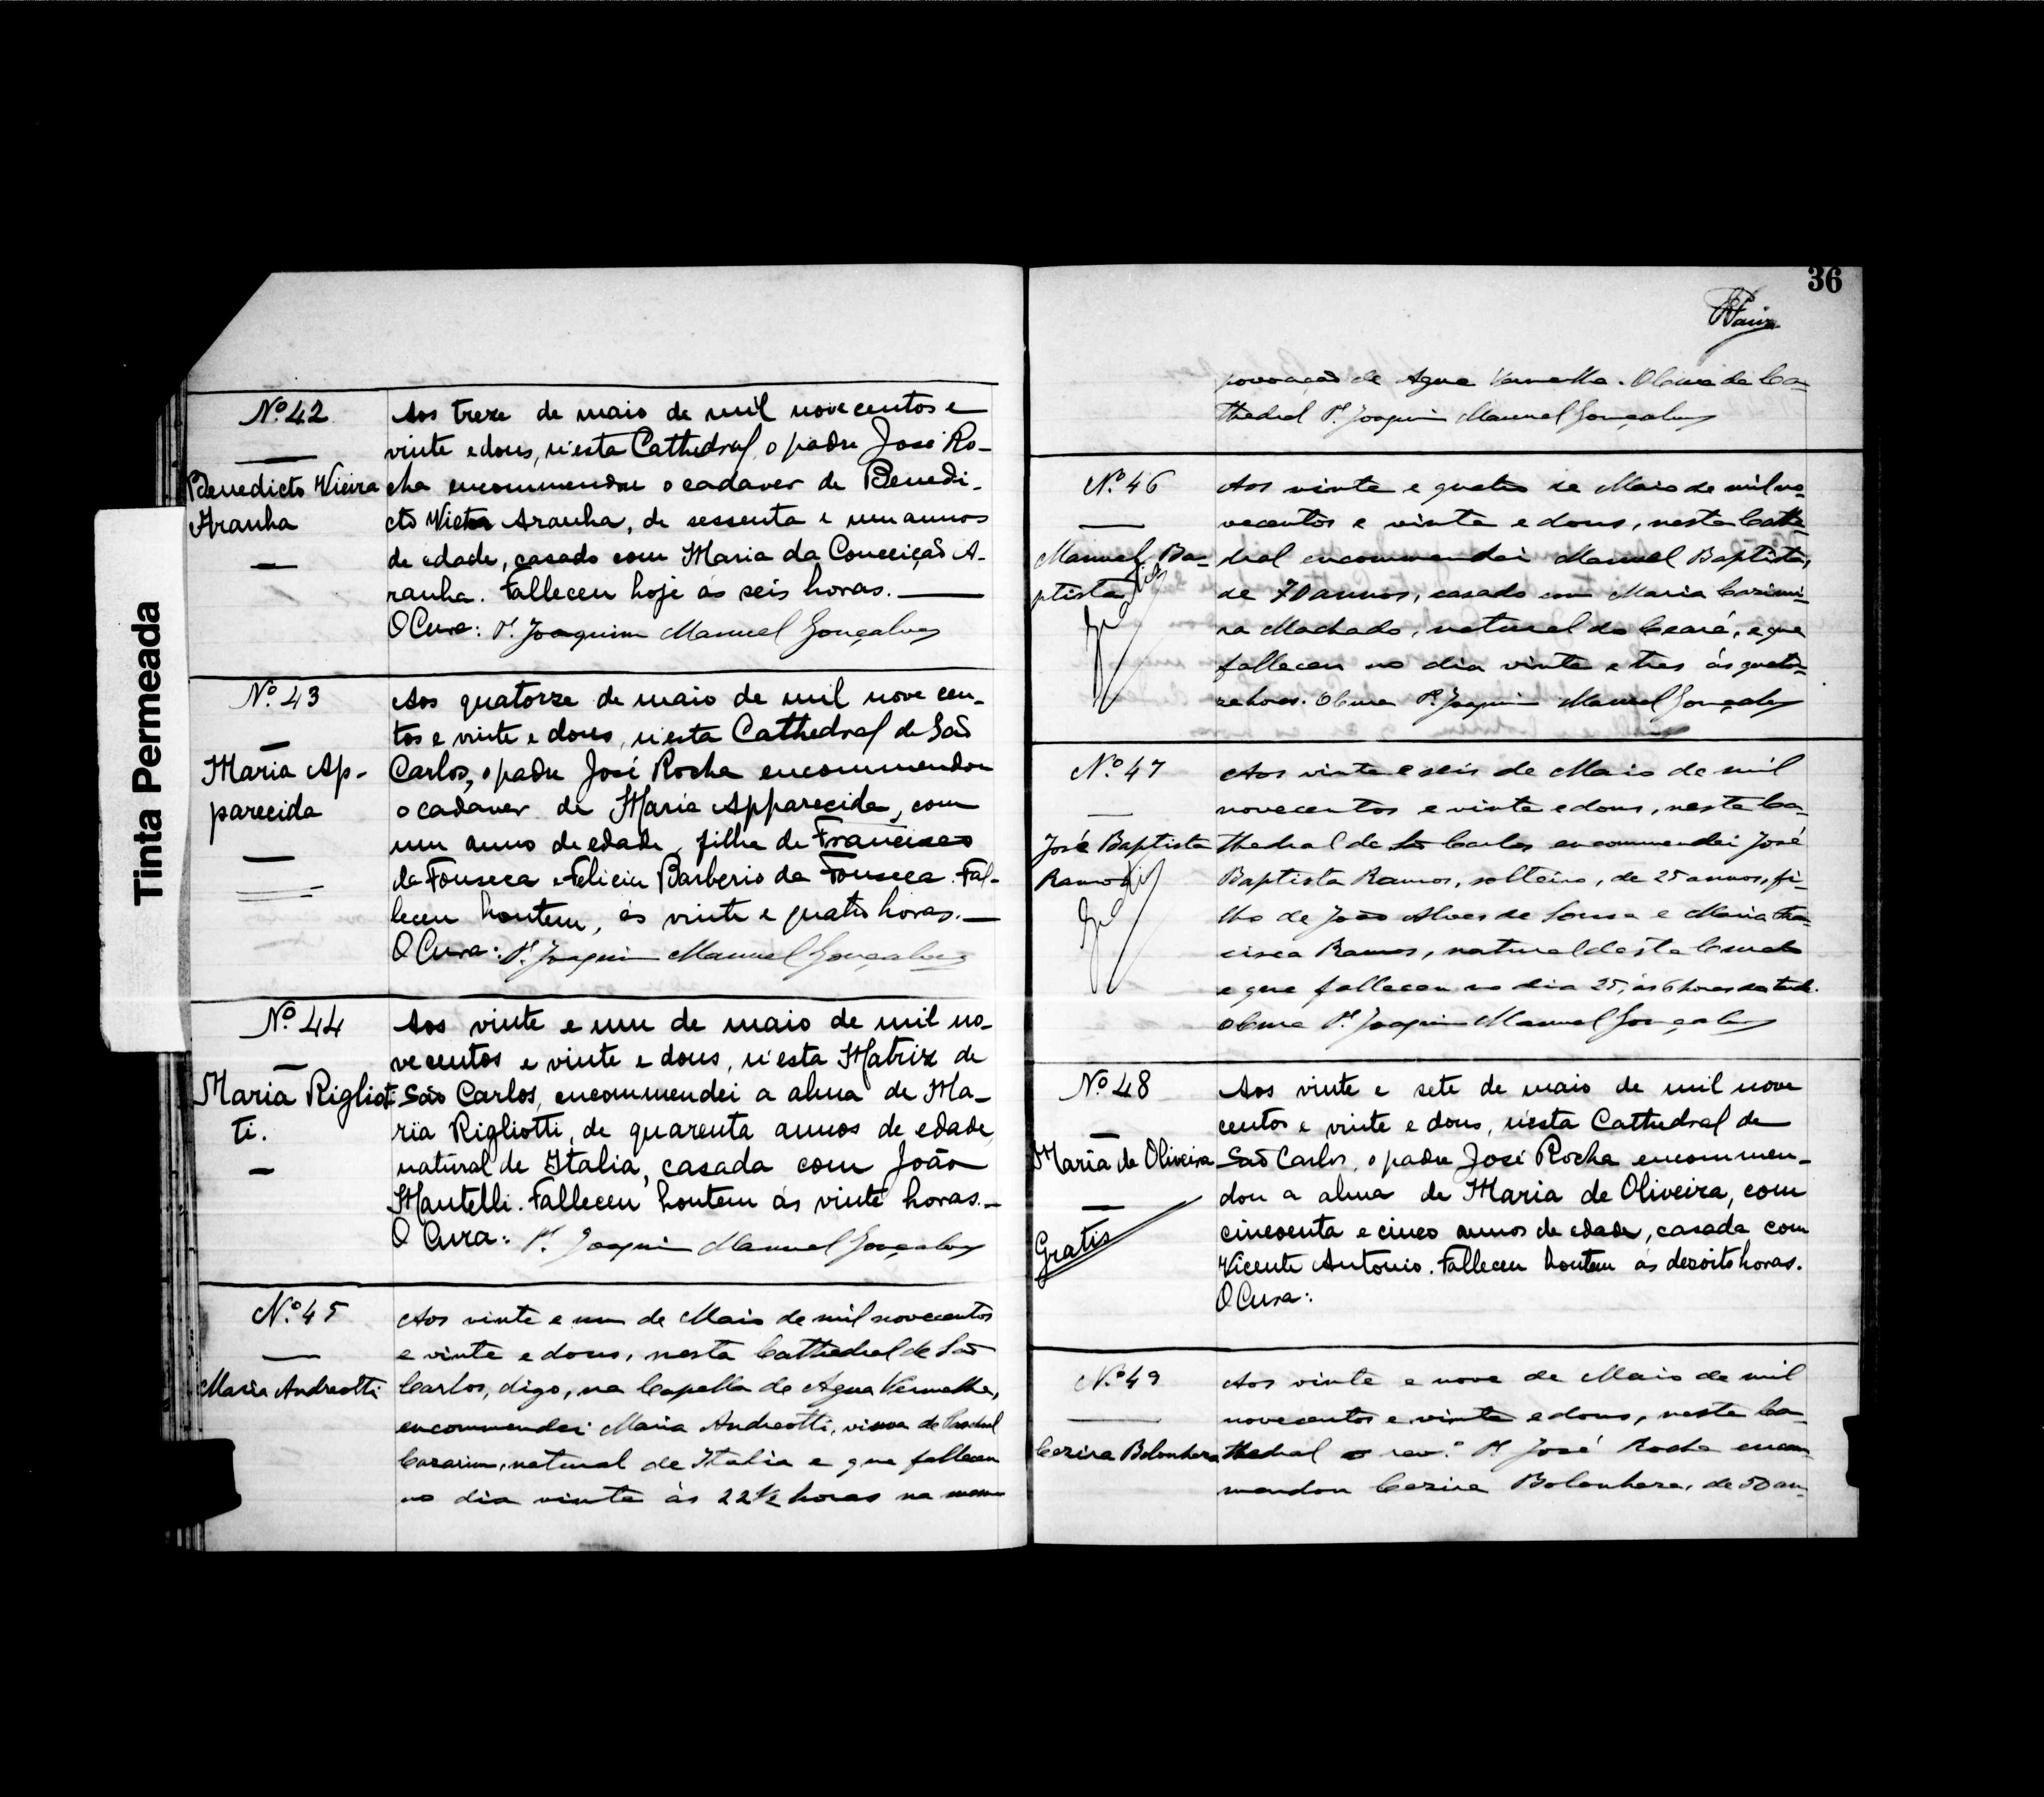 Tinta Permeada
Nº 42
Benedicto Vieira
Aranha
Aos treze de maio de mil novecentos e
vinte e dous, n'esta Cathedral, o padre José Ro-
cha encommendou o cadaver de Benedi-
cto Vieira Aranha, de sessenta e um annos
de edade, casado com Maria da Conceição A-
ranha. Falleceu hoje ás seis horas.
O Cura: Pe. Joaquim Manuel Gonçalves
Nº 43
Maria Ap-
parecida
Aos quatorze de maio de mil nove cen-
tos e vinte e dous, n'esta Cathedral de São
Carlos, o padre José Rocha encommendou
o cadaver de Maria Apparecida, com
um anno de edade, filha de Francisco
da Fonseca e Felicia Barberio da Fonseca. Fal-
leceu hontem, ás vinte e quatro horas.
O Cura: Pe. Joaquim Manuel Gonçalves
Nº 44
Maria Rigliot-
ti.
Aos vinte e um de maio de mil no-
vecentos e vinte e dous, n'esta Matriz de
São Carlos, encommendei a alma de Ma-
ria Rigliotti, de quarenta annos de edade,
natural de Italia, casada com João
Mantelli. Falleceu hontem ás vinte horas.
O Cura: Pe. Joaquim Manuel Gonçalves
Nº 45
Maria Andreotti
Aos vinte e um de Maio de mil novecentos
e vinte e dous, nesta Cathedral de São
Carlos, digo, na Capella de Agua Vermelha,
encommendei Maria Andreotti, viuva de
natural de Italia e que falleceu
no dia vinte ás 22 1/2 horas na mesma
36
povoação de Agua Vermelha. O Cura da Ca-
thedral Pe. Joaquim Manuel Gonçalves
Nº 46
Manuel Ba-
ptista
Gratis
Aos vinte e quatro de Maio de mil no-
vecentos e vinte e dous, nesta Cathe-
dral encommendei Manuel Baptista,
de 70 annos, casado com Maria Casimi-
ra Machado, natural do Ceará, e que
falleceu no dia vinte e tres ás quator-
ze horas. O Cura Pe. Joaquim Manuel Gonçalves
Nº 47
José Baptista
Ramos
Gratis
Aos vinte e seis de Maio de mil
novecentos e vinte e dous, nesta Ca-
thedral de São Carlos encommendei José
Baptista Ramos, solteiro, de 25 annos, fi-
lho de João Alves de Sousa e Maria Fran-
cisca Ramos, natural deste Curato
e que falleceu no dia 25, ás 6 horas da tarde.
O Cura Pe. Joaquim Manuel Gonçalves
Nº 48
Maria de Oliveira
Gratis
Aos vinte e sete de maio de mil nove
centos e vinte e dous, n'esta Cathedral de
São Carlos, o padre José Rocha encommen-
dou a alma de Maria de Oliveira, com
cincoenta e cinco annos de edade, casada com
Vicente Antonio. Falleceu hontem ás dezoito horas.
O Cura:
Nº 49
Cezira Bolonhera
Aos vinte e nove de Maio de mil
novecentos e vinte e dous, nesta Ca-
thedral o revº Pe. José Rocha encom-
mendou Cezira Bolonhera, de 50 an-